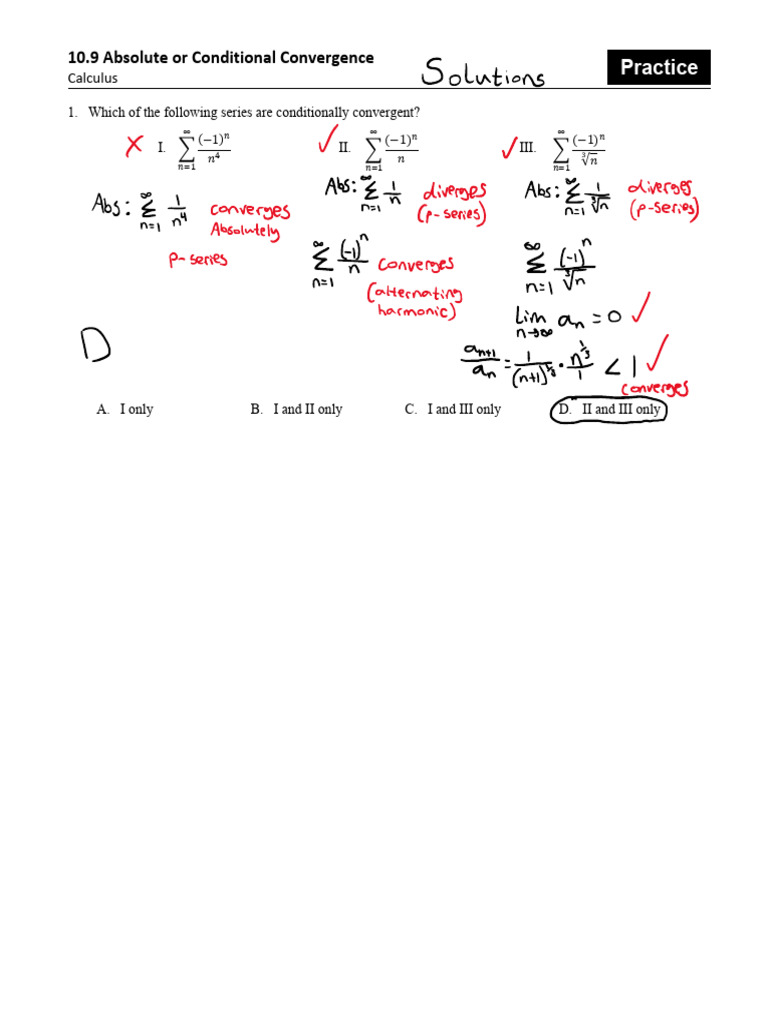 10.9 Absolute or Conditional Convergence
Calculus
Solutions
Practice
1. Which of the following series are conditionally convergent?
✗ I. ∑_{n=1}^{∞} (−1)^n / n^4
✓ II. ∑_{n=1}^{∞} (−1)^n / n
✓ III. ∑_{n=1}^{∞} (−1)^n / ∛n
Abs: ∑_{n=1}^{∞} 1/n^4 converges
Absolutely
p-series
Abs: ∑_{n=1}^{∞} 1/n diverges
(p-series)
∑_{n=1}^{∞} (-1)^n / n converges
(alternating
harmonic)
Abs: ∑_{n=1}^{∞} 1/∛n diverges
(p-series)
∑_{n=1}^{∞} (-1)^n / ∛n
Lim_{n→∞} a_n = 0 ✓
a_{n+1}/a_n = 1/(n+1)^{1/3} · n^{1/3}/1 < 1 ✓
converges
D
A. I only
B. I and II only
C. I and III only
D. II and III only